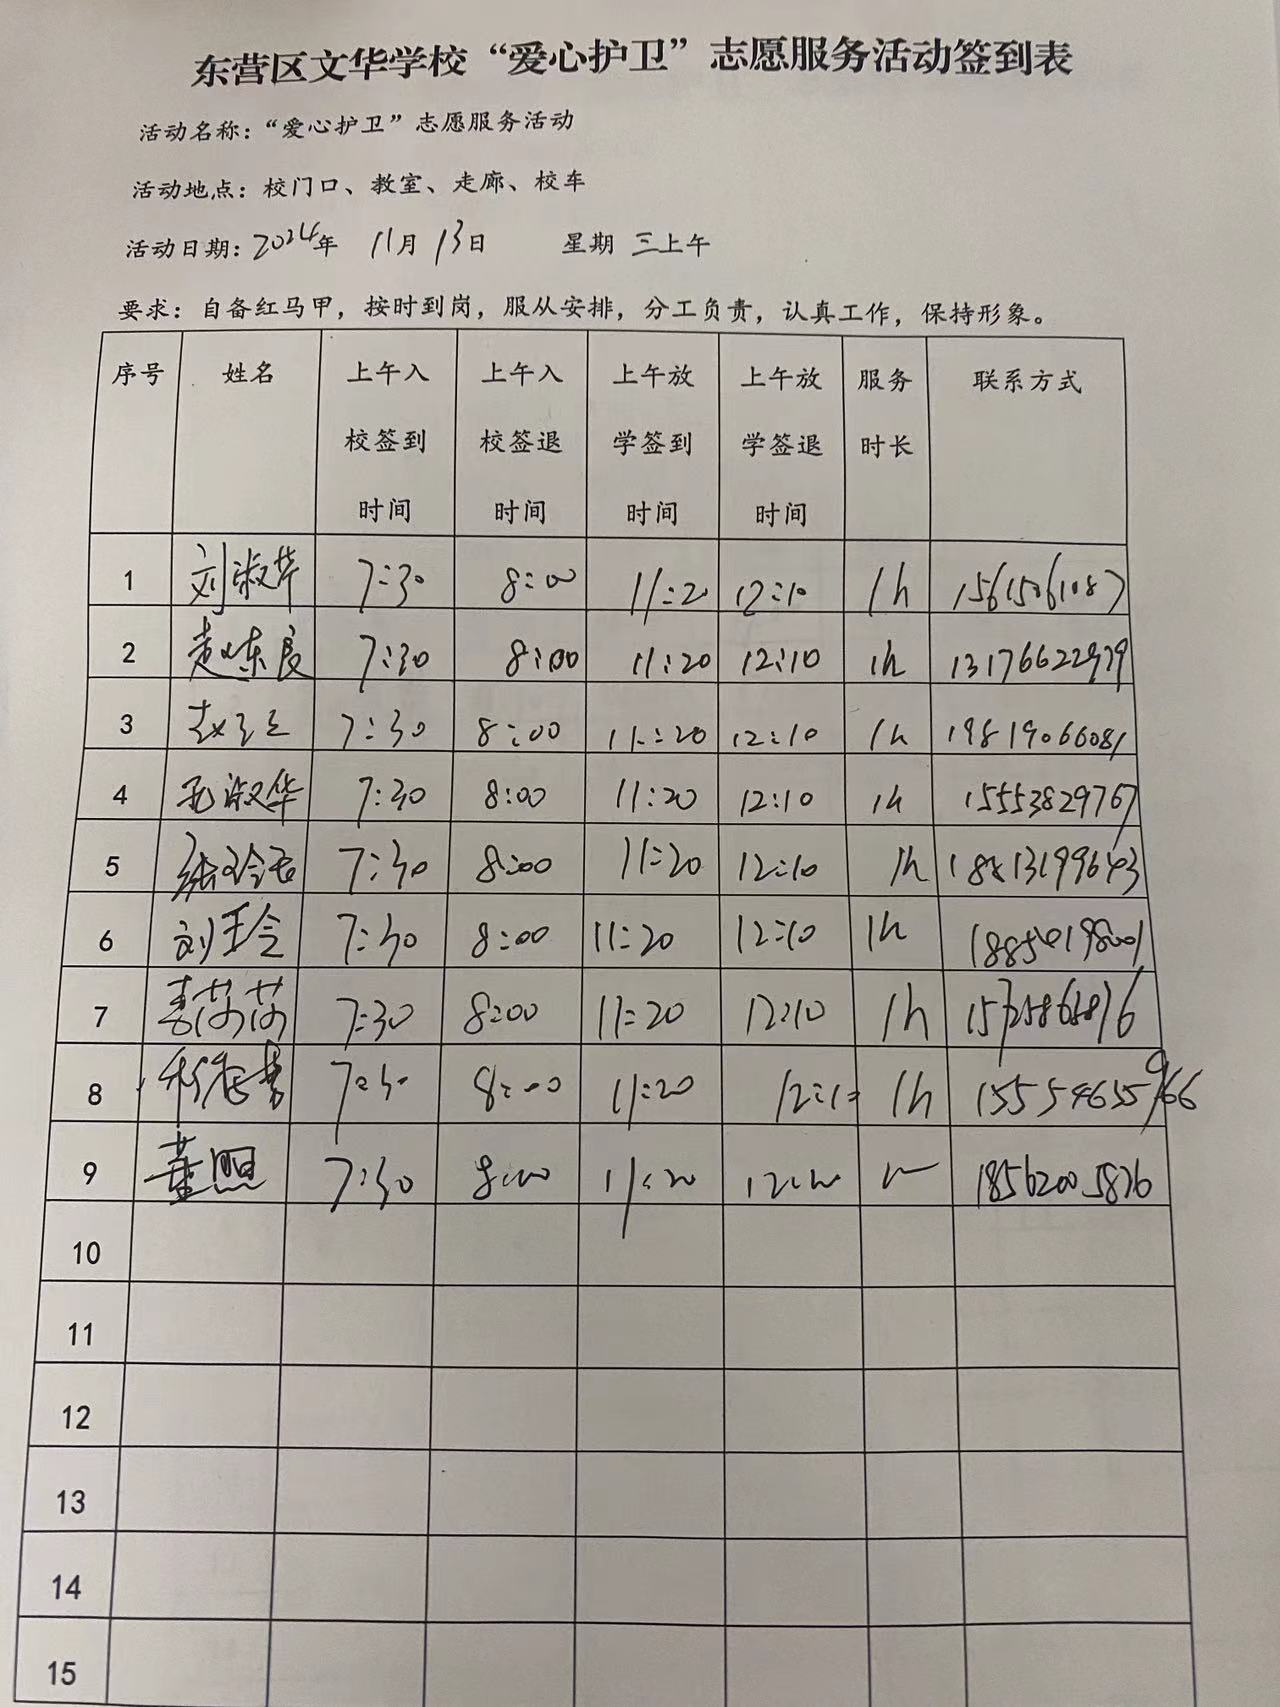 东营区文华学校“爱心护卫”志愿服务活动签到表
活动名称：“爱心护卫”志愿服务活动
活动地点：校门口、教室、走廊、校车
活动日期：2024年 11月 13日 星期 三上午
要求：自备红马甲，按时到岗，服从安排，分工负责，认真工作，保持形象。
序号 姓名 上午入校签到时间 上午入校签退时间 上午放学签到时间 上午放学签退时间 服务时长 联系方式
1 刘淑芹 7:30 8:00 11:20 12:10 1h 15615061087
2 7:30 8:00 11:20 12:10 1h 13176622979
3 7:30 8:00 11:20 12:10 1h 19819066081
4 淑华 7:30 8:00 11:20 12:10 1h 15553829767
5 7:30 8:00 11:20 12:10 1h
6 刘玉令 7:30 8:00 11:20 12:10 1h
7 7:30 8:00 11:20 12:10 1h
8 7:30 8:00 11:20 12:10 1h 15554655966
9 董照 7:30 8:00 11:20 18562005826
10
11
12
13
14
15